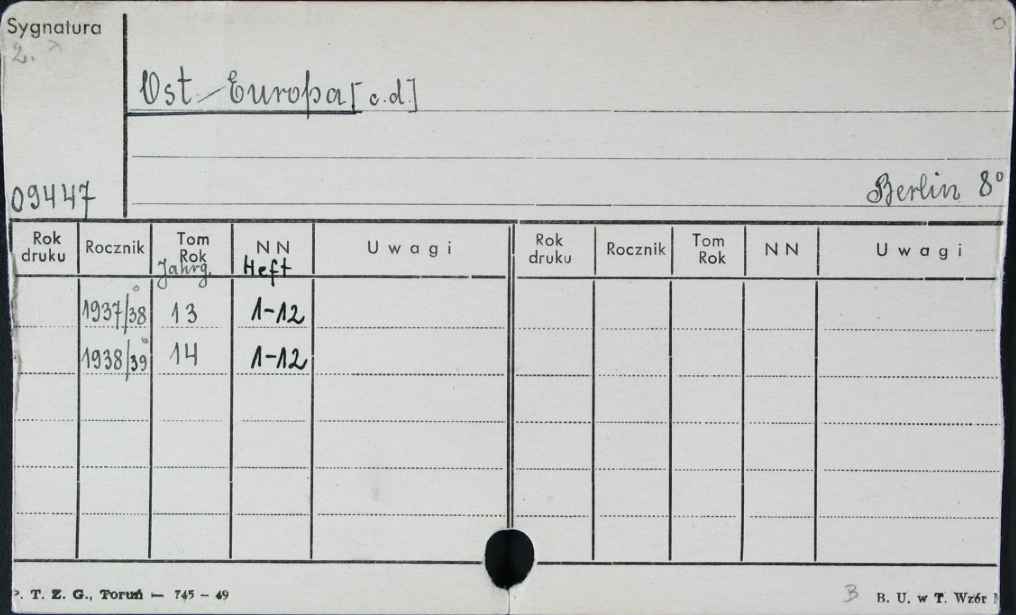 Sygnatura
2.
Ost-Europa [c.d.]
09447
Berlin 8°
Rok druku Rocznik Tom Rok Jahrg. NN Heft Uwagi Rok druku Rocznik Tom Rok NN Uwagi
1937/38 13 1-12
1938/39 14 1-12
P. T. Z. G., Toruń — 745 - 49
B B. U. w T. Wzór